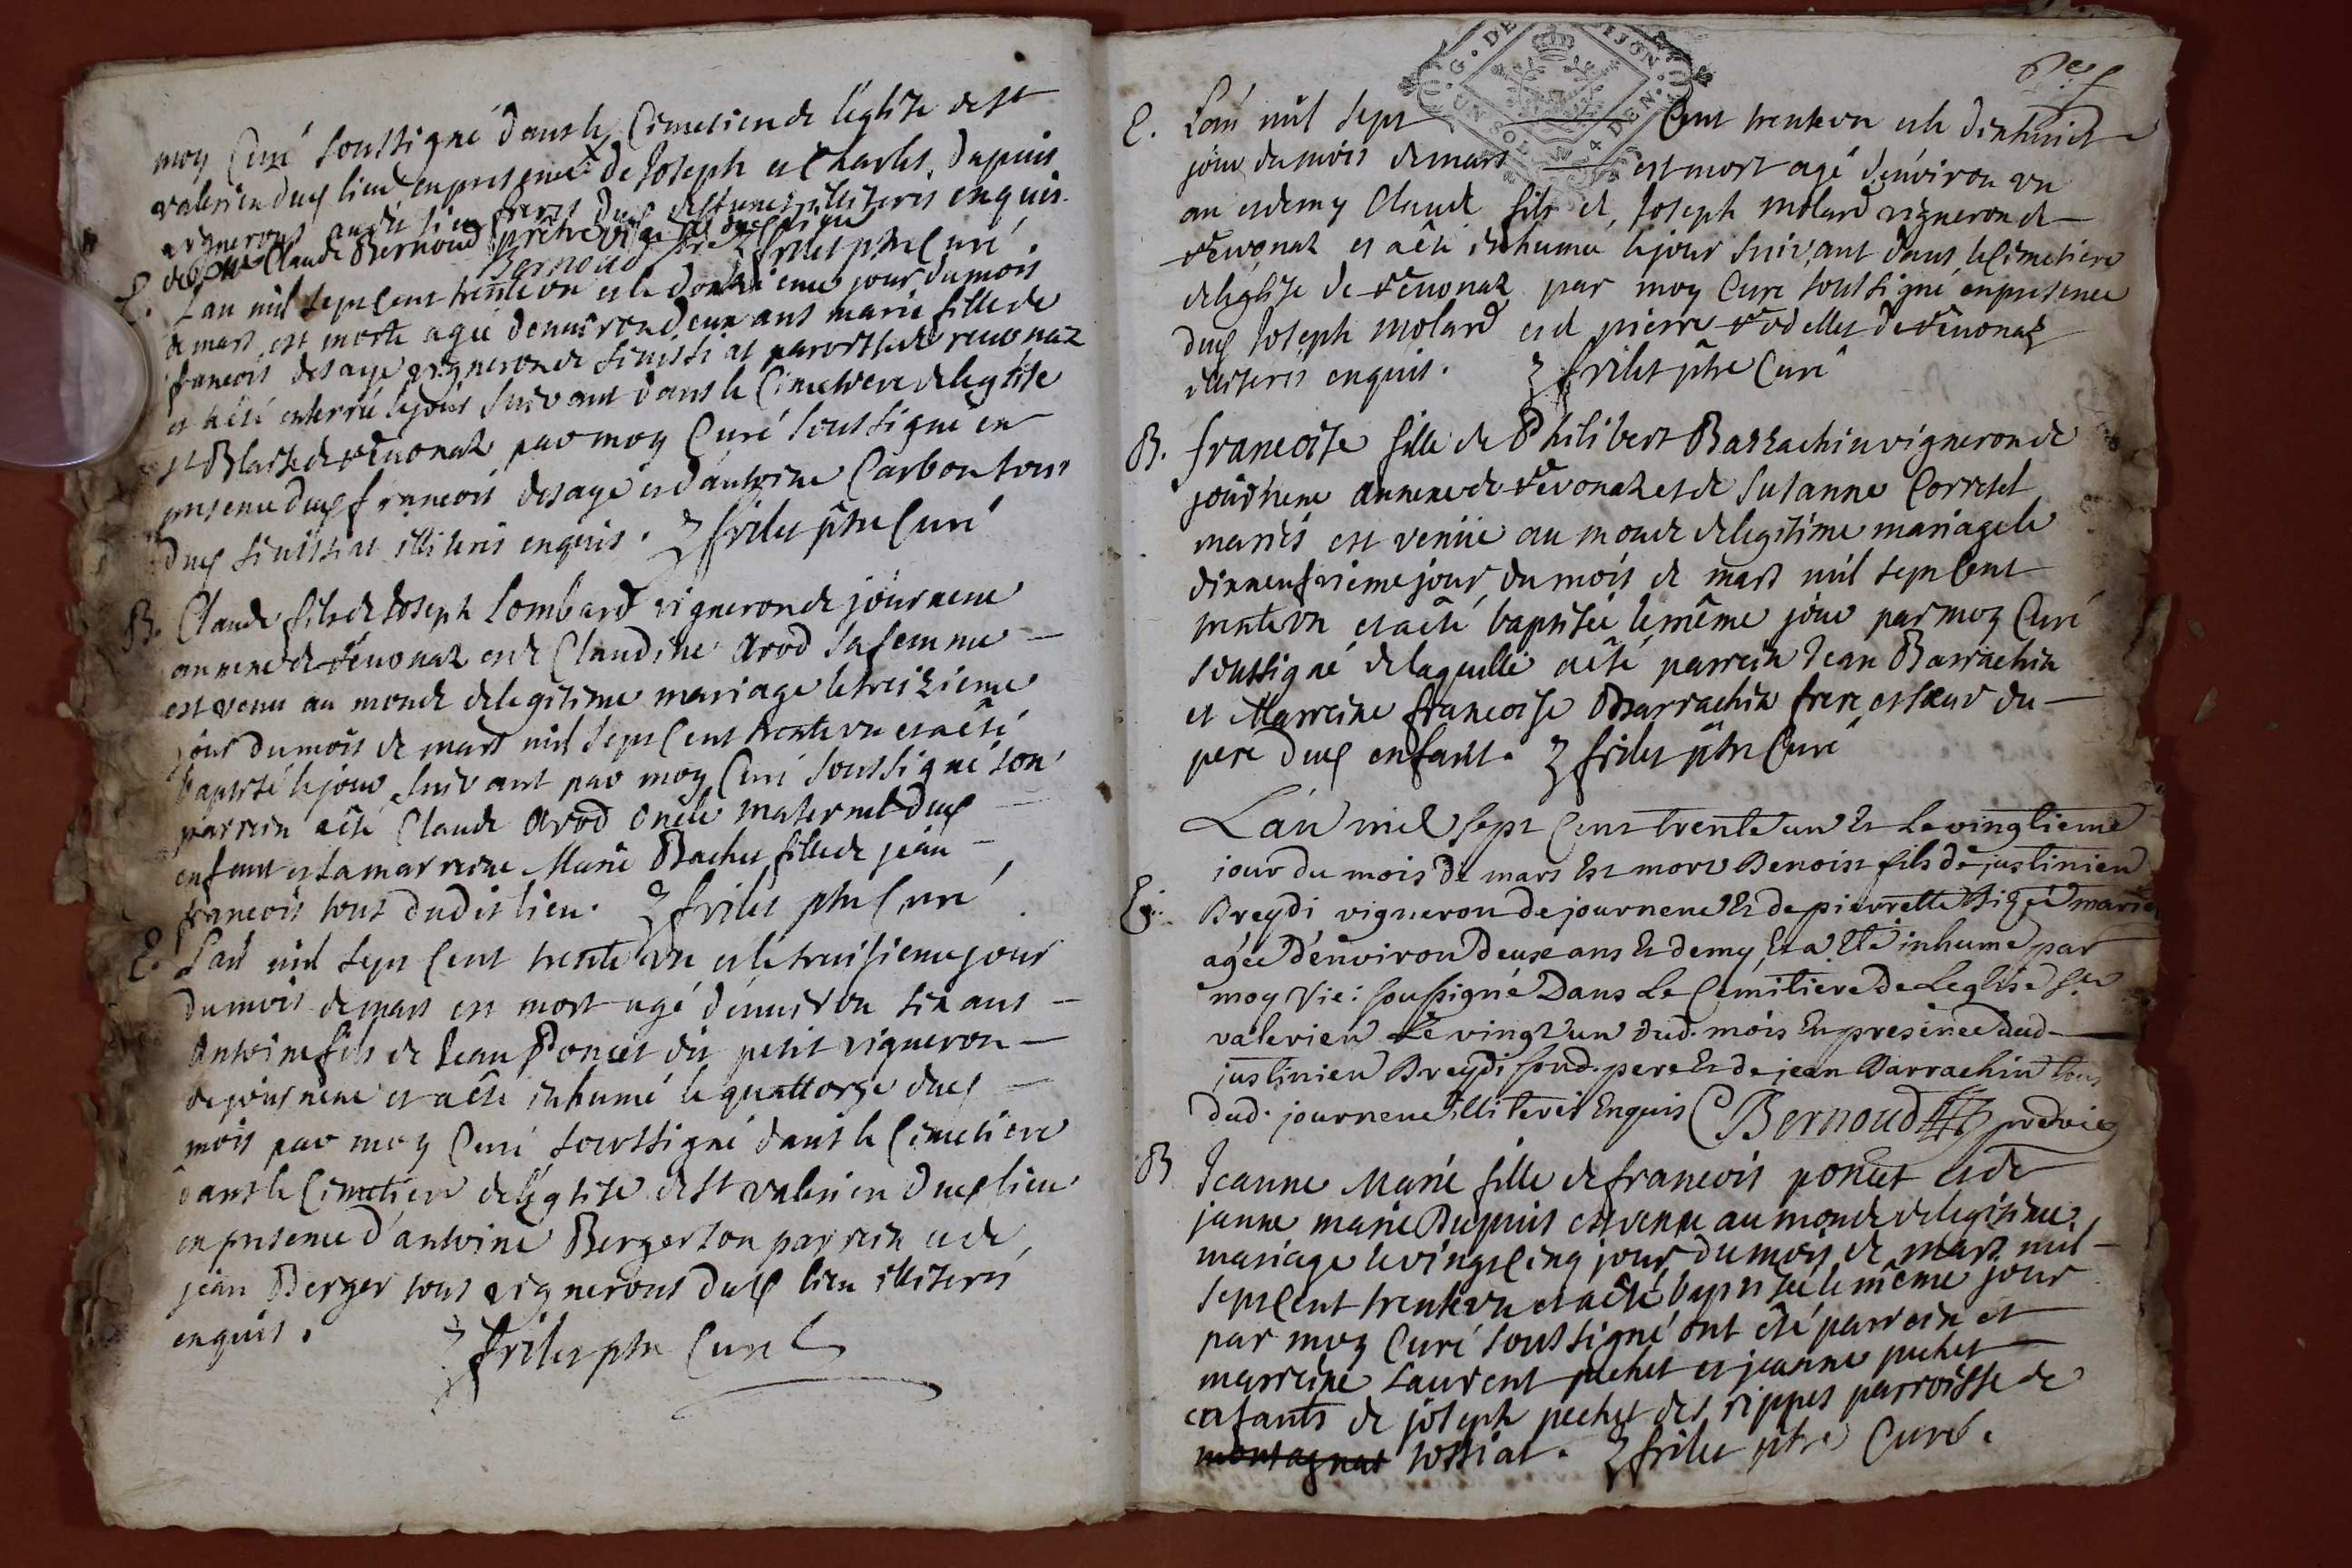 moy Curé soussigné dans le Cimetiere de léglise de st
valerien dud lieu en presence de Joseph et Charles Dupuis
vignerons audit lieu freres dud deffunct illiteres enquis
de Claude Bernoud prêtre
Bernoud ptre frilet ptre Curé.
E. Lan mil sept cent trente vn et le douzieme jour du mois
de mars est morte agée denviron deux ans marie fille de
francois desage vigneron de sinissiat parroisse de reuonaz
et a êté enterrée le jour suivant dans le Cimetiere de leglise
st Blaise de reuonaz par moy Curé soussigné en
presence dud francois desage et dantoine Carbon tous
dud sinissiat illiteres enquis. frilet ptre Curé
B. Claude fils de Joseph Lombard vigneron de journene
annexe de reuonaz et de Claudine Arod sa femme
est venu au monde de legitime mariage le treizieme
jour du mois de mars mil sept cent trente vn et a êté
baptisé le jour suivant par moy Curé soussigné son
parrein a êté Claude Arod oncle maternel dud
enfant et sa marreine Marie Bachet fille de jean
francois tous dudit lieu. frilet ptre Curé
E. L'an mil sept cent trente vn et le treisieme jour
du mois de mars est mort agé d'enuiron six ans
Antoine fils de Jean Poncet dit petit vigneron
de journene et a êté inhumé le quattorze dud
mois par moy Curé soussigné dans le Cimetiere
dans le Cimetiere de léglise de st valerien dud lieu
en presence d'antoine Berger son parrein et de
jean Berger tous vignerons dud lieu illiteres
enquis. frilet ptre Curé
G. DE DIJON
UN SOL 4 DEN.
E. L'an mil sept cent trente vn et le dixhuict
jour du mois de mars est mort agé d'environ vn
an et demy Claude fils de Joseph Molard vigneron de
reuonaz et a êté inhumé le jour suivant dans le Cimetiere
de leglise de reuonaz par moy Curé soussigné en presence
dud Joseph Molard et de pierre rodellet de reuonaz
illiteres enquis. frilet ptre Curé
B. francoise fille de Philibert Barrachin vigneron de
journene annexe de revonaz et de Susanne Corretel
mariés est venüe au monde de legitime mariage le
dixneufvieme jour du mois de mars mil sept cent
trente vn et a êté baptisée le même jour par moy Curé
soussigné de laquelle a êté parrein Jean Barrachin
et Marreine francoise Barrachin frere et soeur du
pere dud enfant. frilet ptre Curé
L'an mil sept cent trente un et le vingtieme
jour du mois de mars Est mort Benoist fils de justinien
E. Breydi vigneron de journene Et de pierrette mariés
agée d'environ deux ans Et demy, Et a Eté inhumé par
moy Vic: soussigné Dans Le Cemitiere de Leglise St
valerien Le vingt un dud. mois En presence dud.
justinien Breydi sond. pere Et de jean Barrachin tous
dud. journene illiteres Enquis C Bernoud ptre vic
B Jeanne Marie fille de francois poncet et de
janne marie Dupuis est venue au monde de legitime
mariage le vingt cinq jour du mois de mars mil
sept cent trente vn et a êté baptisée le même jour
par moy Curé soussigné ont êté parrein et
marreine Laurent pechet et jeanne pechet
enfants de joseph pechet des rippes parroisse de
montagnat tossiat. frilet ptre Curé.